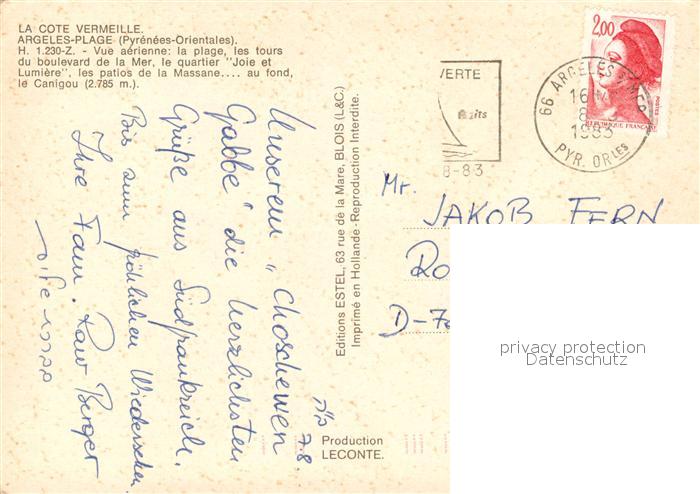 LA COTE VERMEILLE.
ARGELES-PLAGE (Pyrénées-Orientales).
H. 1.230-Z. - Vue aérienne: la plage, les tours
du boulevard de la Mer, le quartier "Joie et
Lumière", les patios de la Massane.... au fond,
le Canigou (2.785 m.).
Unserem „Choschewen
Gabbe" die herzlichsten
Grüße aus Südfrankreich.
Bis zum fröhlichen Wiedersehen
Ihre Fam. Berger
7.8.
Editions ESTEL, 63 rue de la Mare, BLOIS (L&C)
Imprimé en Hollande - Reproduction Interdite.
Production
LECONTE.
VERTE
8-83
2,00
REPUBLIQUE FRANÇAISE
POSTES
66 ARGELES S/MER
16 H
8
1983
PYR. ORLES
Mr. JAKOB FERN
RO
D-7
privacy protection
Datenschutz